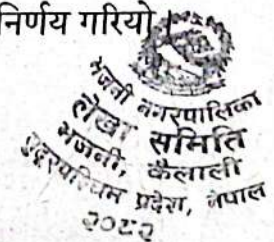 निर्णय गरियो।
भजनी नगरपालिका
लेखा समिति
भजनी, कैलाली
सुदूरपश्चिम प्रदेश, नेपाल
२०८२